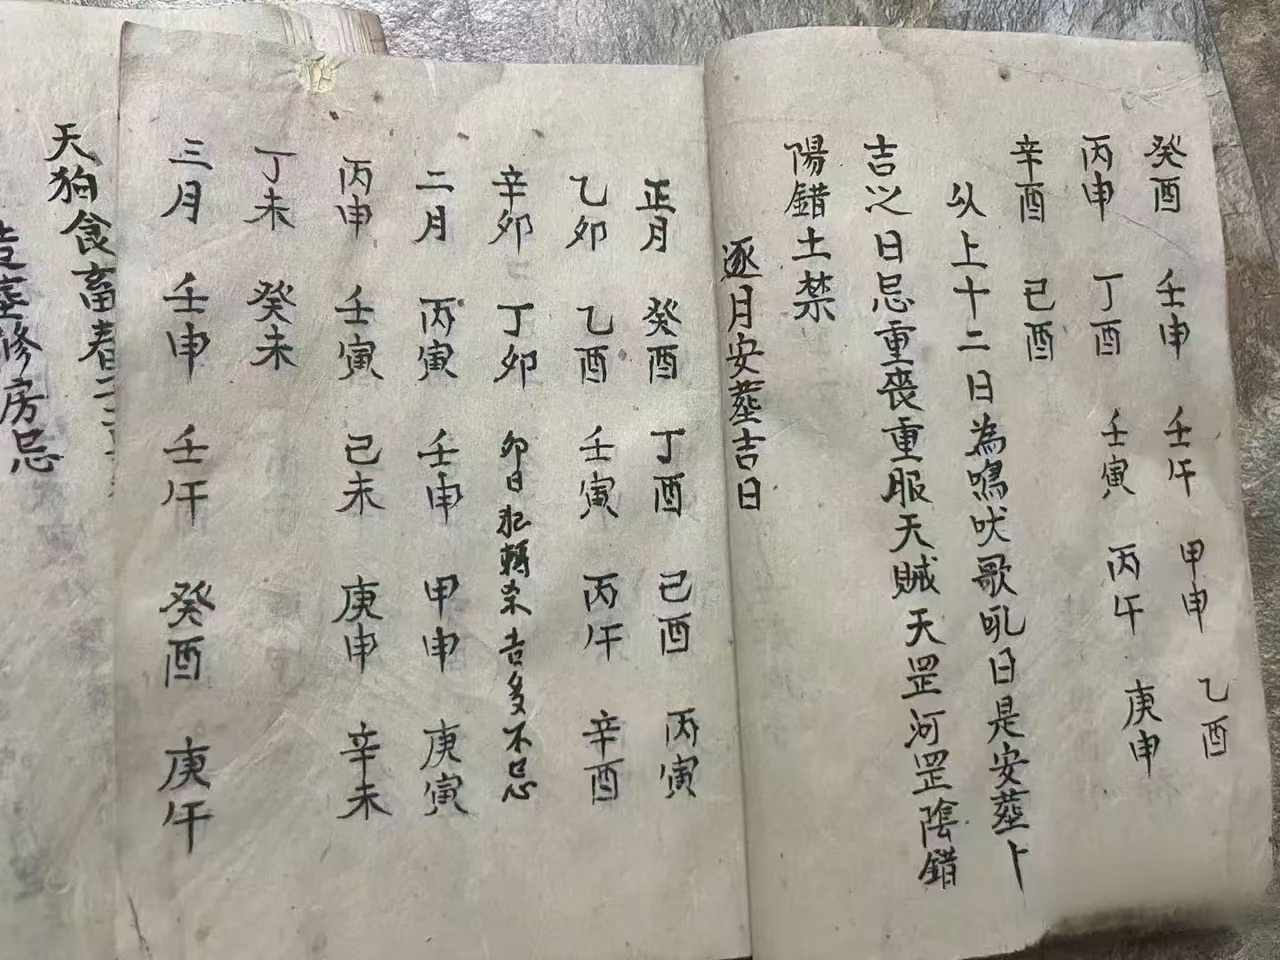 癸酉 壬申 壬午 甲申 乙酉
丙申 丁酉 壬寅 丙午 庚申
辛酉 己酉
以上十二日為鳴吠歌吼日是安葬上
吉之日忌重喪重服天賊天罡河罡陰錯
陽錯土禁
逐月安葬吉日
正月 癸酉 丁酉 己酉 丙寅
乙卯 乙酉 壬寅 丙午 辛酉
辛卯 丁卯 卯日犯轉杀吉多不忌
二月 丙寅 壬申 甲申 庚寅
丙申 壬寅 己未 庚申 辛未
丁未 癸未
三月 壬申 壬午 癸酉 庚午
天狗食畜春二三
葬修房忌